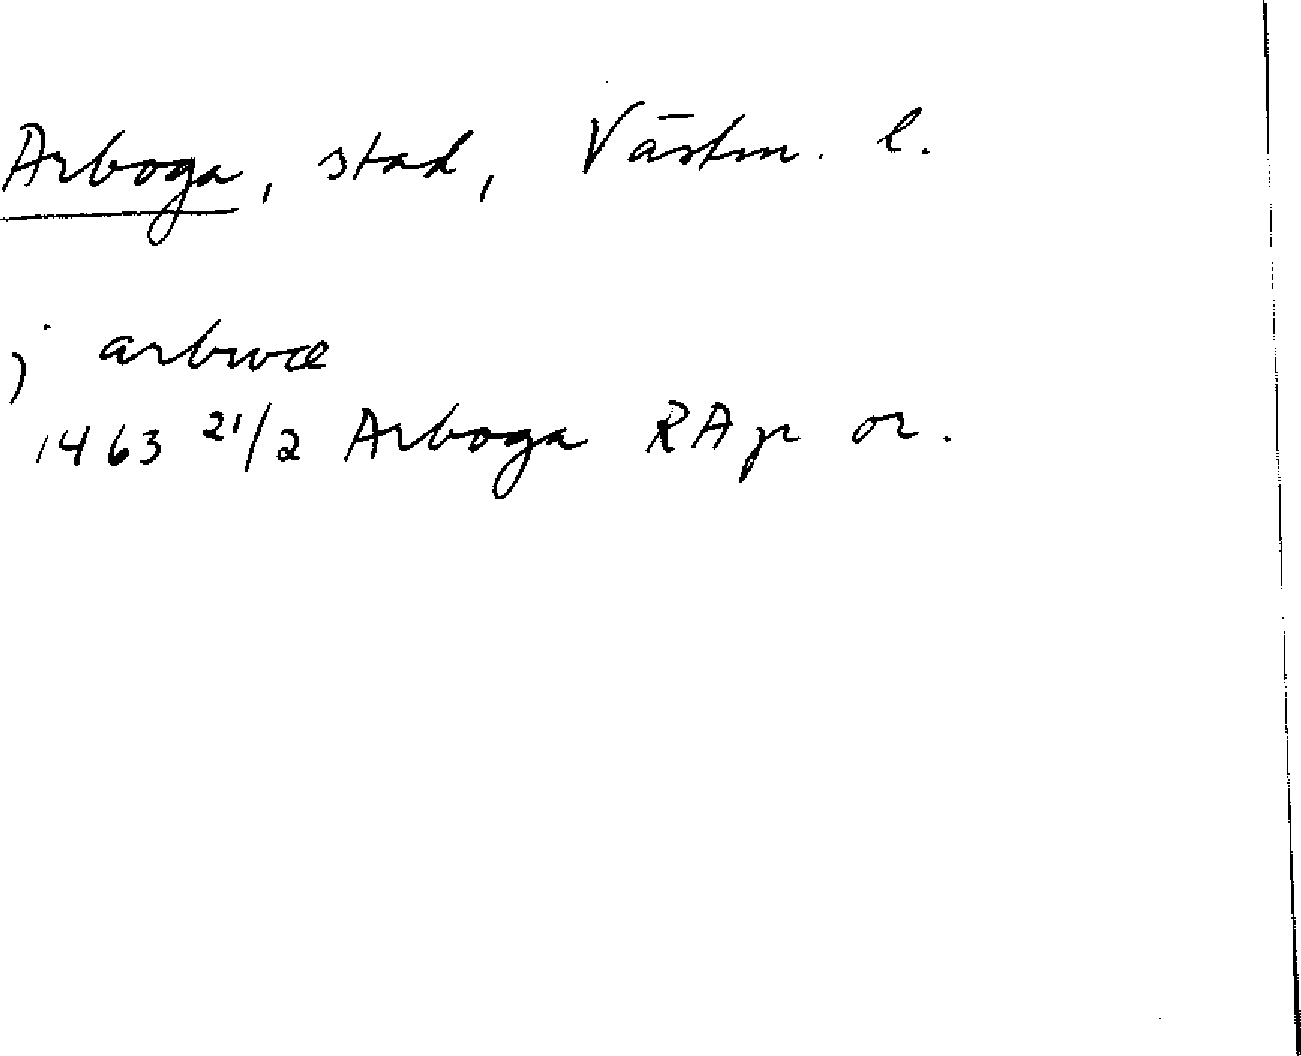 Arboga, stad, Västm. l.
j arbwæ
1463 21/2 Arboga RAp or.